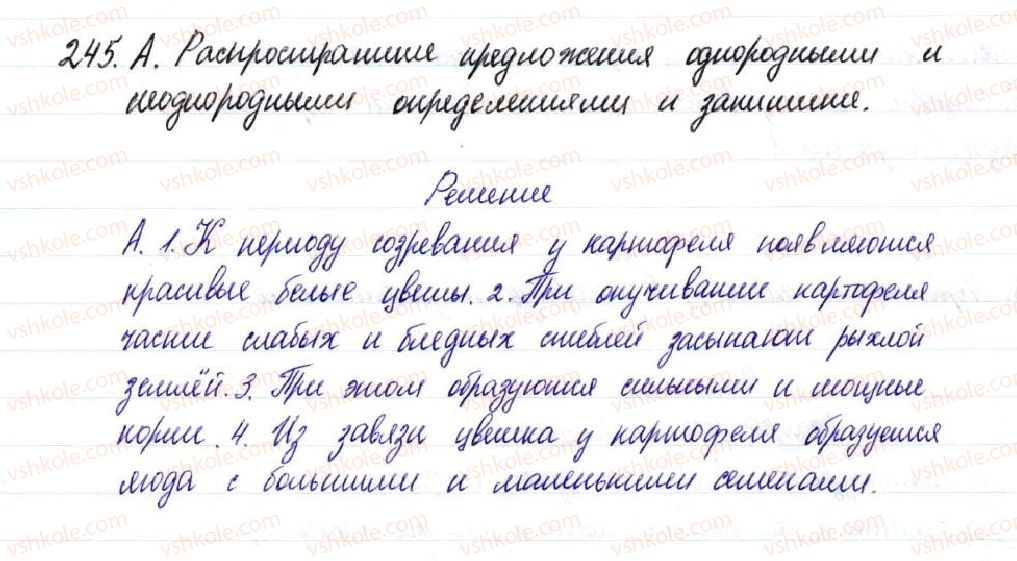 245. А. Распространите предложения однородными и
неоднородными определениями и запишите.
Решение
А. 1. К периоду созревания у картофеля появляются
красивые белые цветы. 2. При окучивании картофеля
части слабых и бледных стеблей засыпают рыхлой
землёй. 3. При этом образуются сильными и мощные
корни. 4. Из завязи цветка у картофеля образуется
ягода с большими и маленькими семенами.